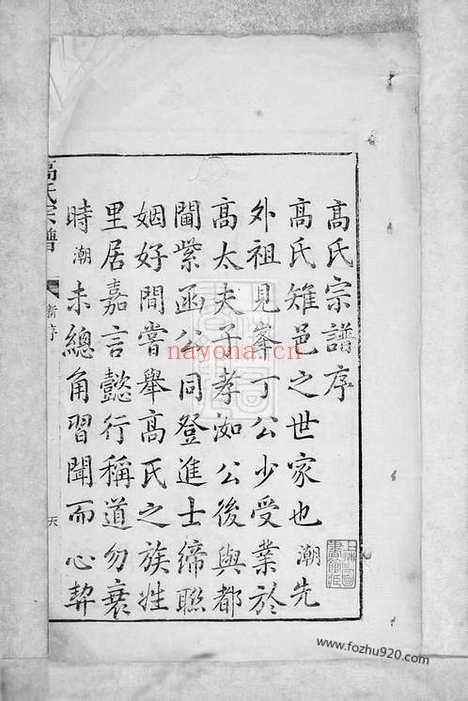 高氏宗譜序
高氏雉邑之世家也潮先
外祖見峯丁公少受業於
高太夫子孝洳公後與都
閫紫函公同登進士締聯
姻好間嘗舉高氏之族姓
里居嘉言懿行稱道勿衰
時潮未總角習聞而心契
高氏宗譜
新序
天
nayona.cn
www.fozhu920.com